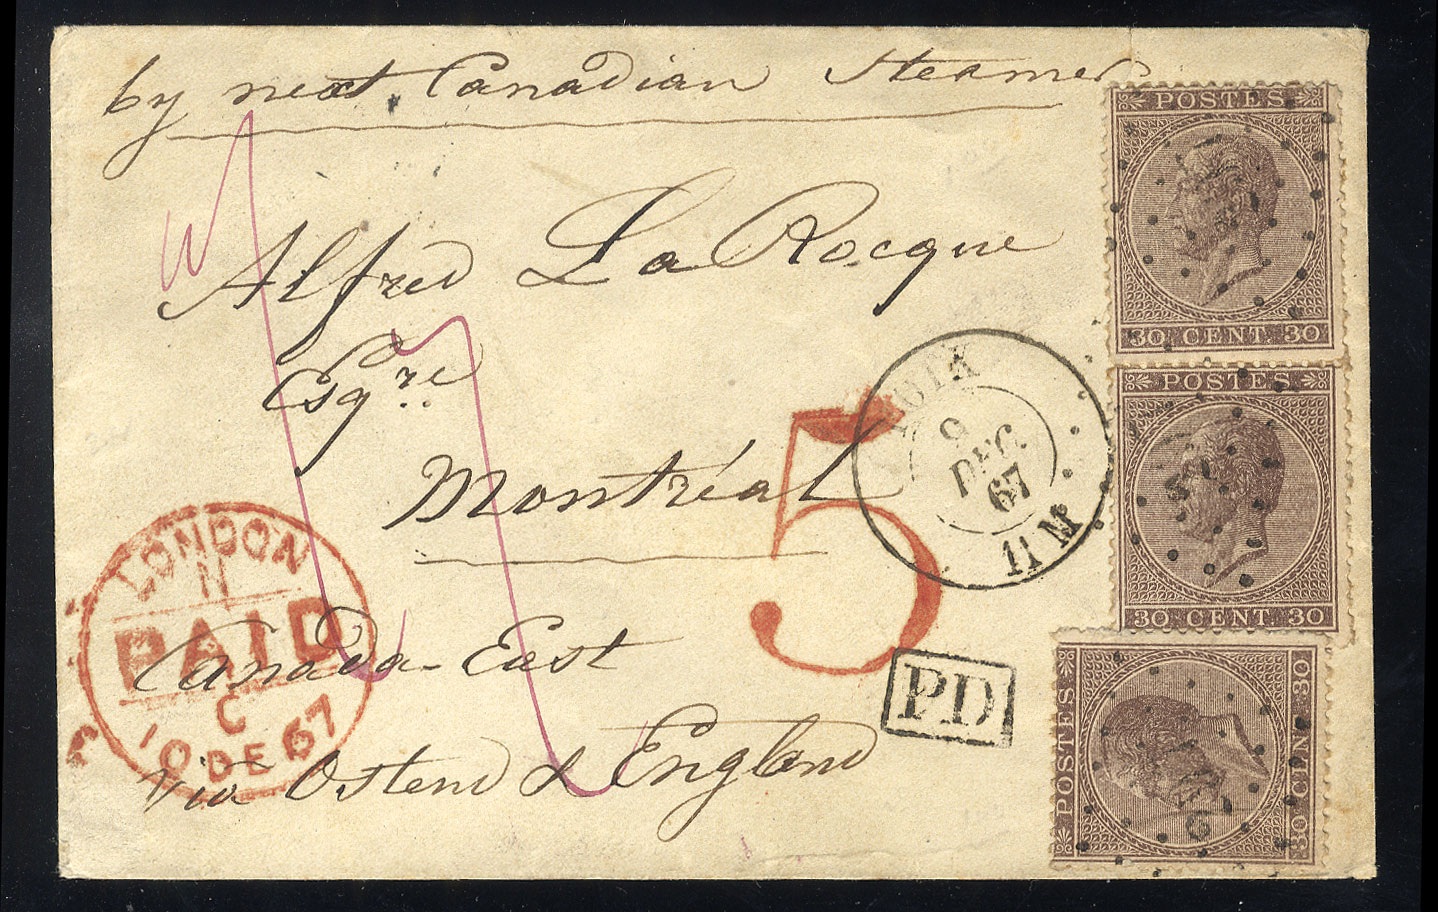 by next Canadian Steamer
Alfred La Rocque
Esqre
Montréal
Canada-East
via Ostend & England
POSTES
30 CENT. 30
POSTES
30 CENT. 30
POSTES
30 CENT. 30
9
DEC.
67
11 M
5
PD
LONDON
PAID
C
10 DE 67